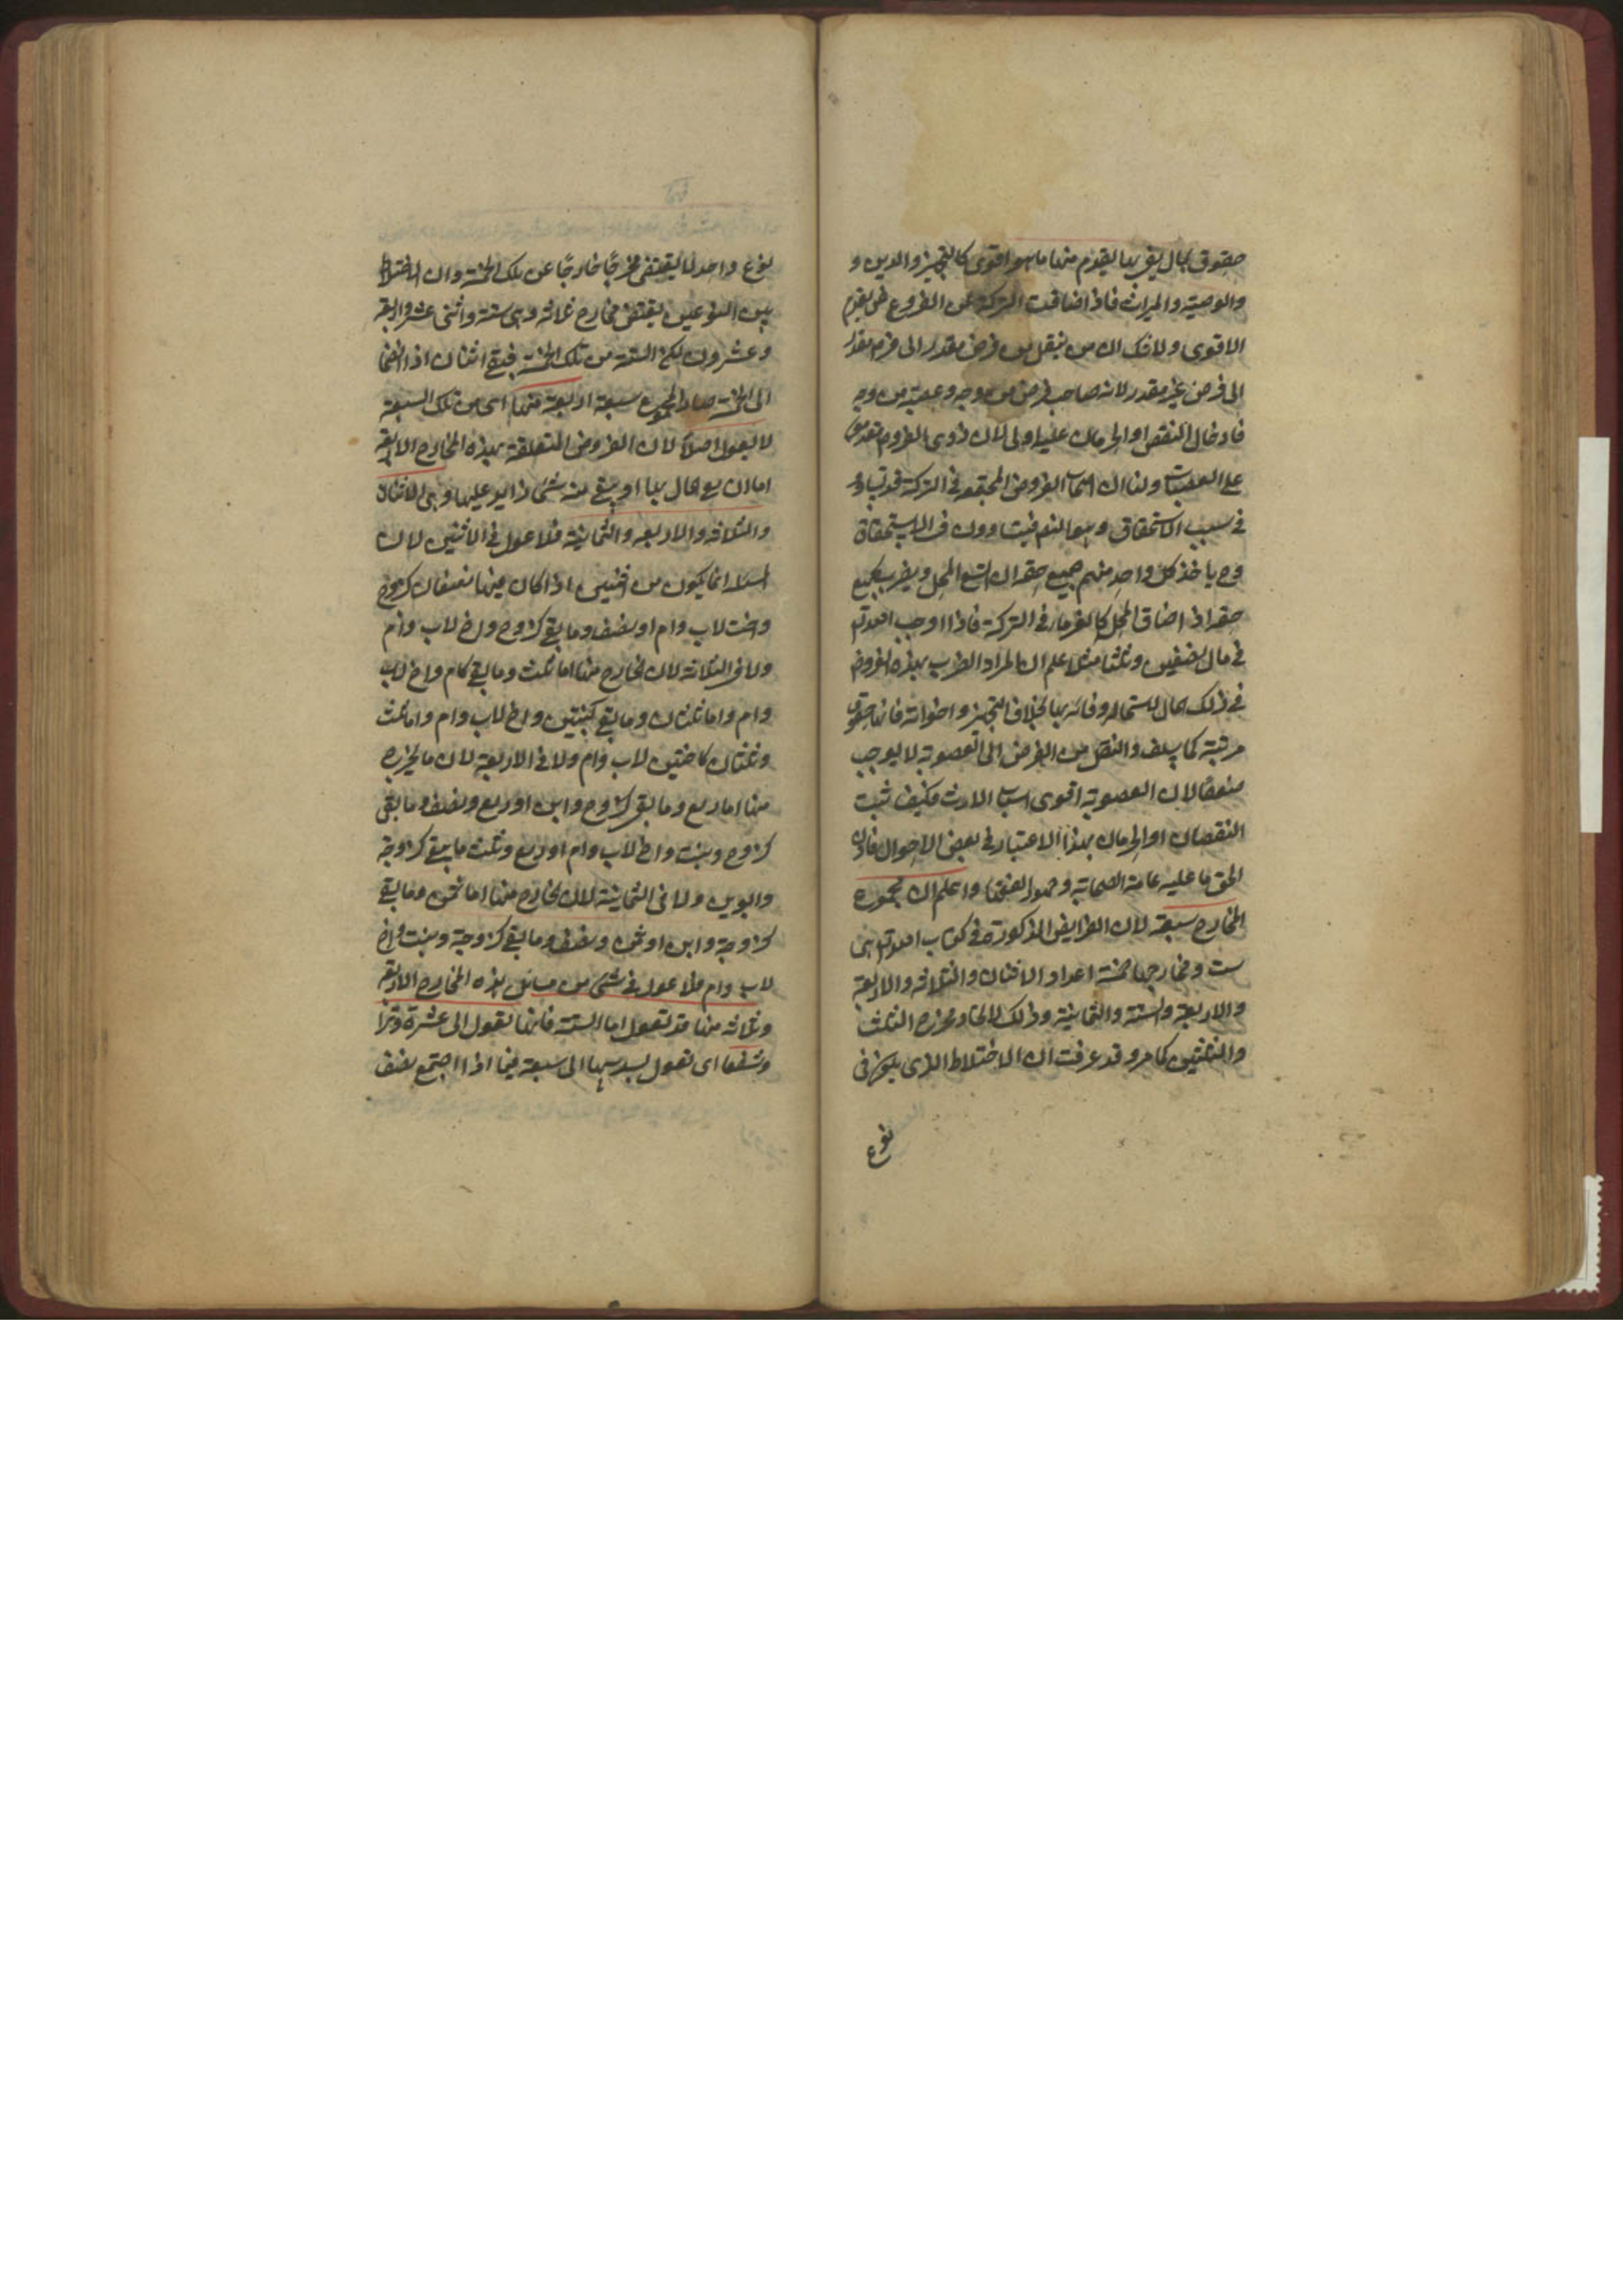 حقوق بمال يفى بها يقدم منها ما هو اقوى كالتجهيز والدين و
والوصية والميراث فاذا ضاقت التركة عن الفروض يقدم
الاقوى ولا شك ان من ينقل من فرض مقدر الى فرض مقدر
الى فرض غير مقدر لانه صاحب فرض من وجه وعصبة من وجه
فادخال النقص او الحرمان عليه اولى لان ذوى الفروض مقدمون
على العصبات ولنا ان اصحاب الفروض المجتمعة فى التركة قد تساووا
فى سبب الاستحقاق وهو النص فيتساوون فى الاستحقاق
وح ياخذ كل واحد منهم جميع حقه ان اتسع المحل ويضرب بجميع
حقه اذا ضاق المحل كالغرماء فى التركة فاذا اوجب الله تع
فى مال نصفين وثلثا مثلا علم ان المراد الضرب بهذه الفروض
فى ذلك المال لاستحالة وفائه بها بخلاف التجهيز واخواته فانها حقوق
مرتبة كما سلف والنقل من الفرض الى العصوبة لا يوجب
ضعفا لان العصوبة اقوى اسباب الارث فكيف يثبت
النقصان او الحرمان بهذا الاعتبار فى بعض الاحوال فاذن
الحق ما عليه عامة الصحابة وجمهور الفقهاء واعلم ان مجموع
المخارج سبعة لان الفرايض المذكورة فى كتاب الله تع هى
ست ومخارجها خمسة اعداد الاثنان والثلاثة والاربعة
والاربعة والستة والثمانية وذلك لاتحاد مخرج الثلث
والثلثين كما مر وقد عرفت ان الاختلاط الذى يكون فى
نوع
نوع واحد لا يقتضى مخرجًا خارجًا عن تلك الخمسة وان الاختلاط
بين النوعين يقتضى مخارج ثلاثة وهى ستة واثنى عشر واربعة
وعشرون لكن الستة من تلك الخمسة فبقى اثنان اذا انضما
الى الخمسة صار المجموع سبعة اربعة منها اى من تلك السبعة
لا يعول اصلا لان الفروض المتعلقة بهذه المخارج الاربعة
اما ان يفى المال بها او يبقى منه شئ زايد عليها وهى الاثنان
والثلاثة والاربعة والثمانية فلا عول فى الاثنين لان
المسئلة انما يكون من اثنين اذا كان فيها نصفان كزوج
واخت لاب وام او نصف وما بقى كزوج واخ لاب وام
ولا فى الثلاثة لان الخارج منها اما ثلث وما بقى كام واخ لاب
وام واما ثلثان وما بقى كبنتين واخ لاب وام واما ثلث
وثلثان كاختين لاب وام ولا فى الاربعة لان ما يخرج
منها اما ربع وما بقى كزوج وابن او ربع ونصف وما بقى
كزوج وبنت واخ لاب وام او ربع وثلث ما بقى كزوجة
وابوين ولا فى الثمانية لان الخارج منها اما ثمن وما بقى
كزوجة وابن او ثمن ونصف وما بقى كزوجة وبنت واخ
لاب وام فلا عول فى شئ من مسائل هذه المخارج الاربعة
وثلاثة منها قد تعول اما الستة فانها تعول الى عشرة وترا
وشفعا اى تعول بسدسها الى سبعة فيما اذا اجتمع نصف